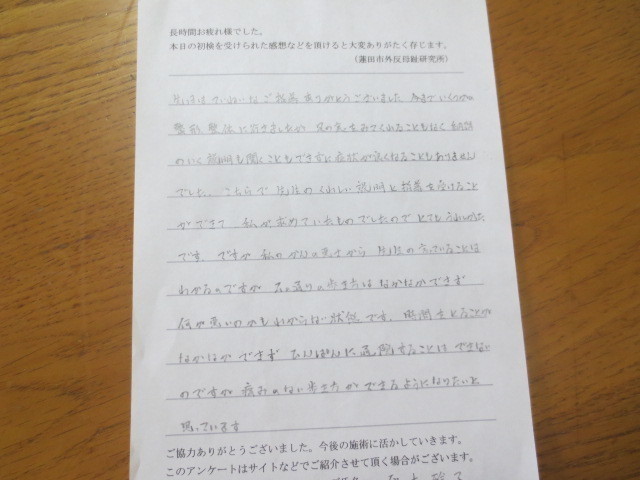 長時間お疲れ様でした。
本日の初検を受けられた感想などを頂けると大変ありがたく存じます。
（蓮田市外反母趾研究所）
先生はていねいなご指導ありがとうございました 今まで いくつかの
整骨 整体に行きましたが 足の先をみてくれることもなく 納得
のいく説明も聞くこともできずに症状が良くなることもありません
でした。こちらで先生のくわしい説明と指導を受けること
ができて 私が求めていたものでしたので とてもうれしかった
です ですが 私の 先生の いることは
わかるのですが 歩き方は なかなかできず
何が悪いのかも わからない状態です。時間をとることが
なかなかできず ひんぱんに することは できない
のですが 痛みのない歩き方ができるようになりたいと
思っています
ご協力ありがとうございました。今後の施術に活かしていきます。
このアンケートはサイトなどでご紹介させて頂く場合がございます。